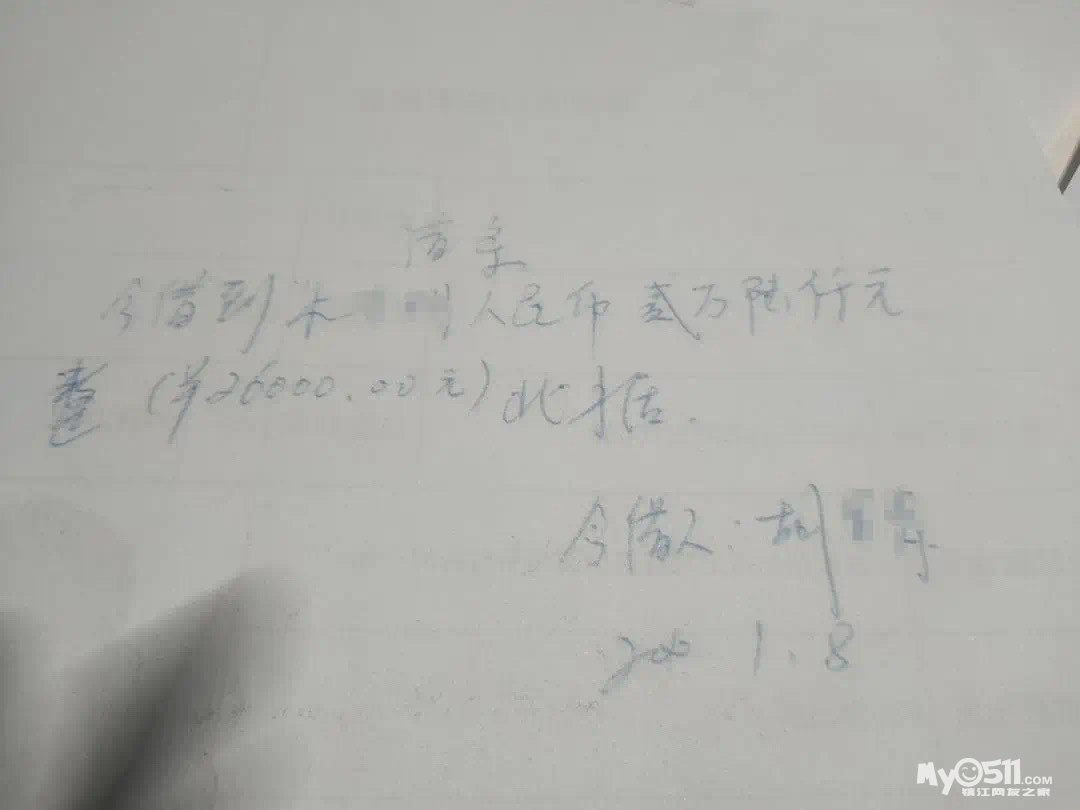 借条
今借到朱 人民币贰万陆仟元
整(¥26000.00元)此据.
今借人:胡
1.8
My0511.com
镇江网友之家